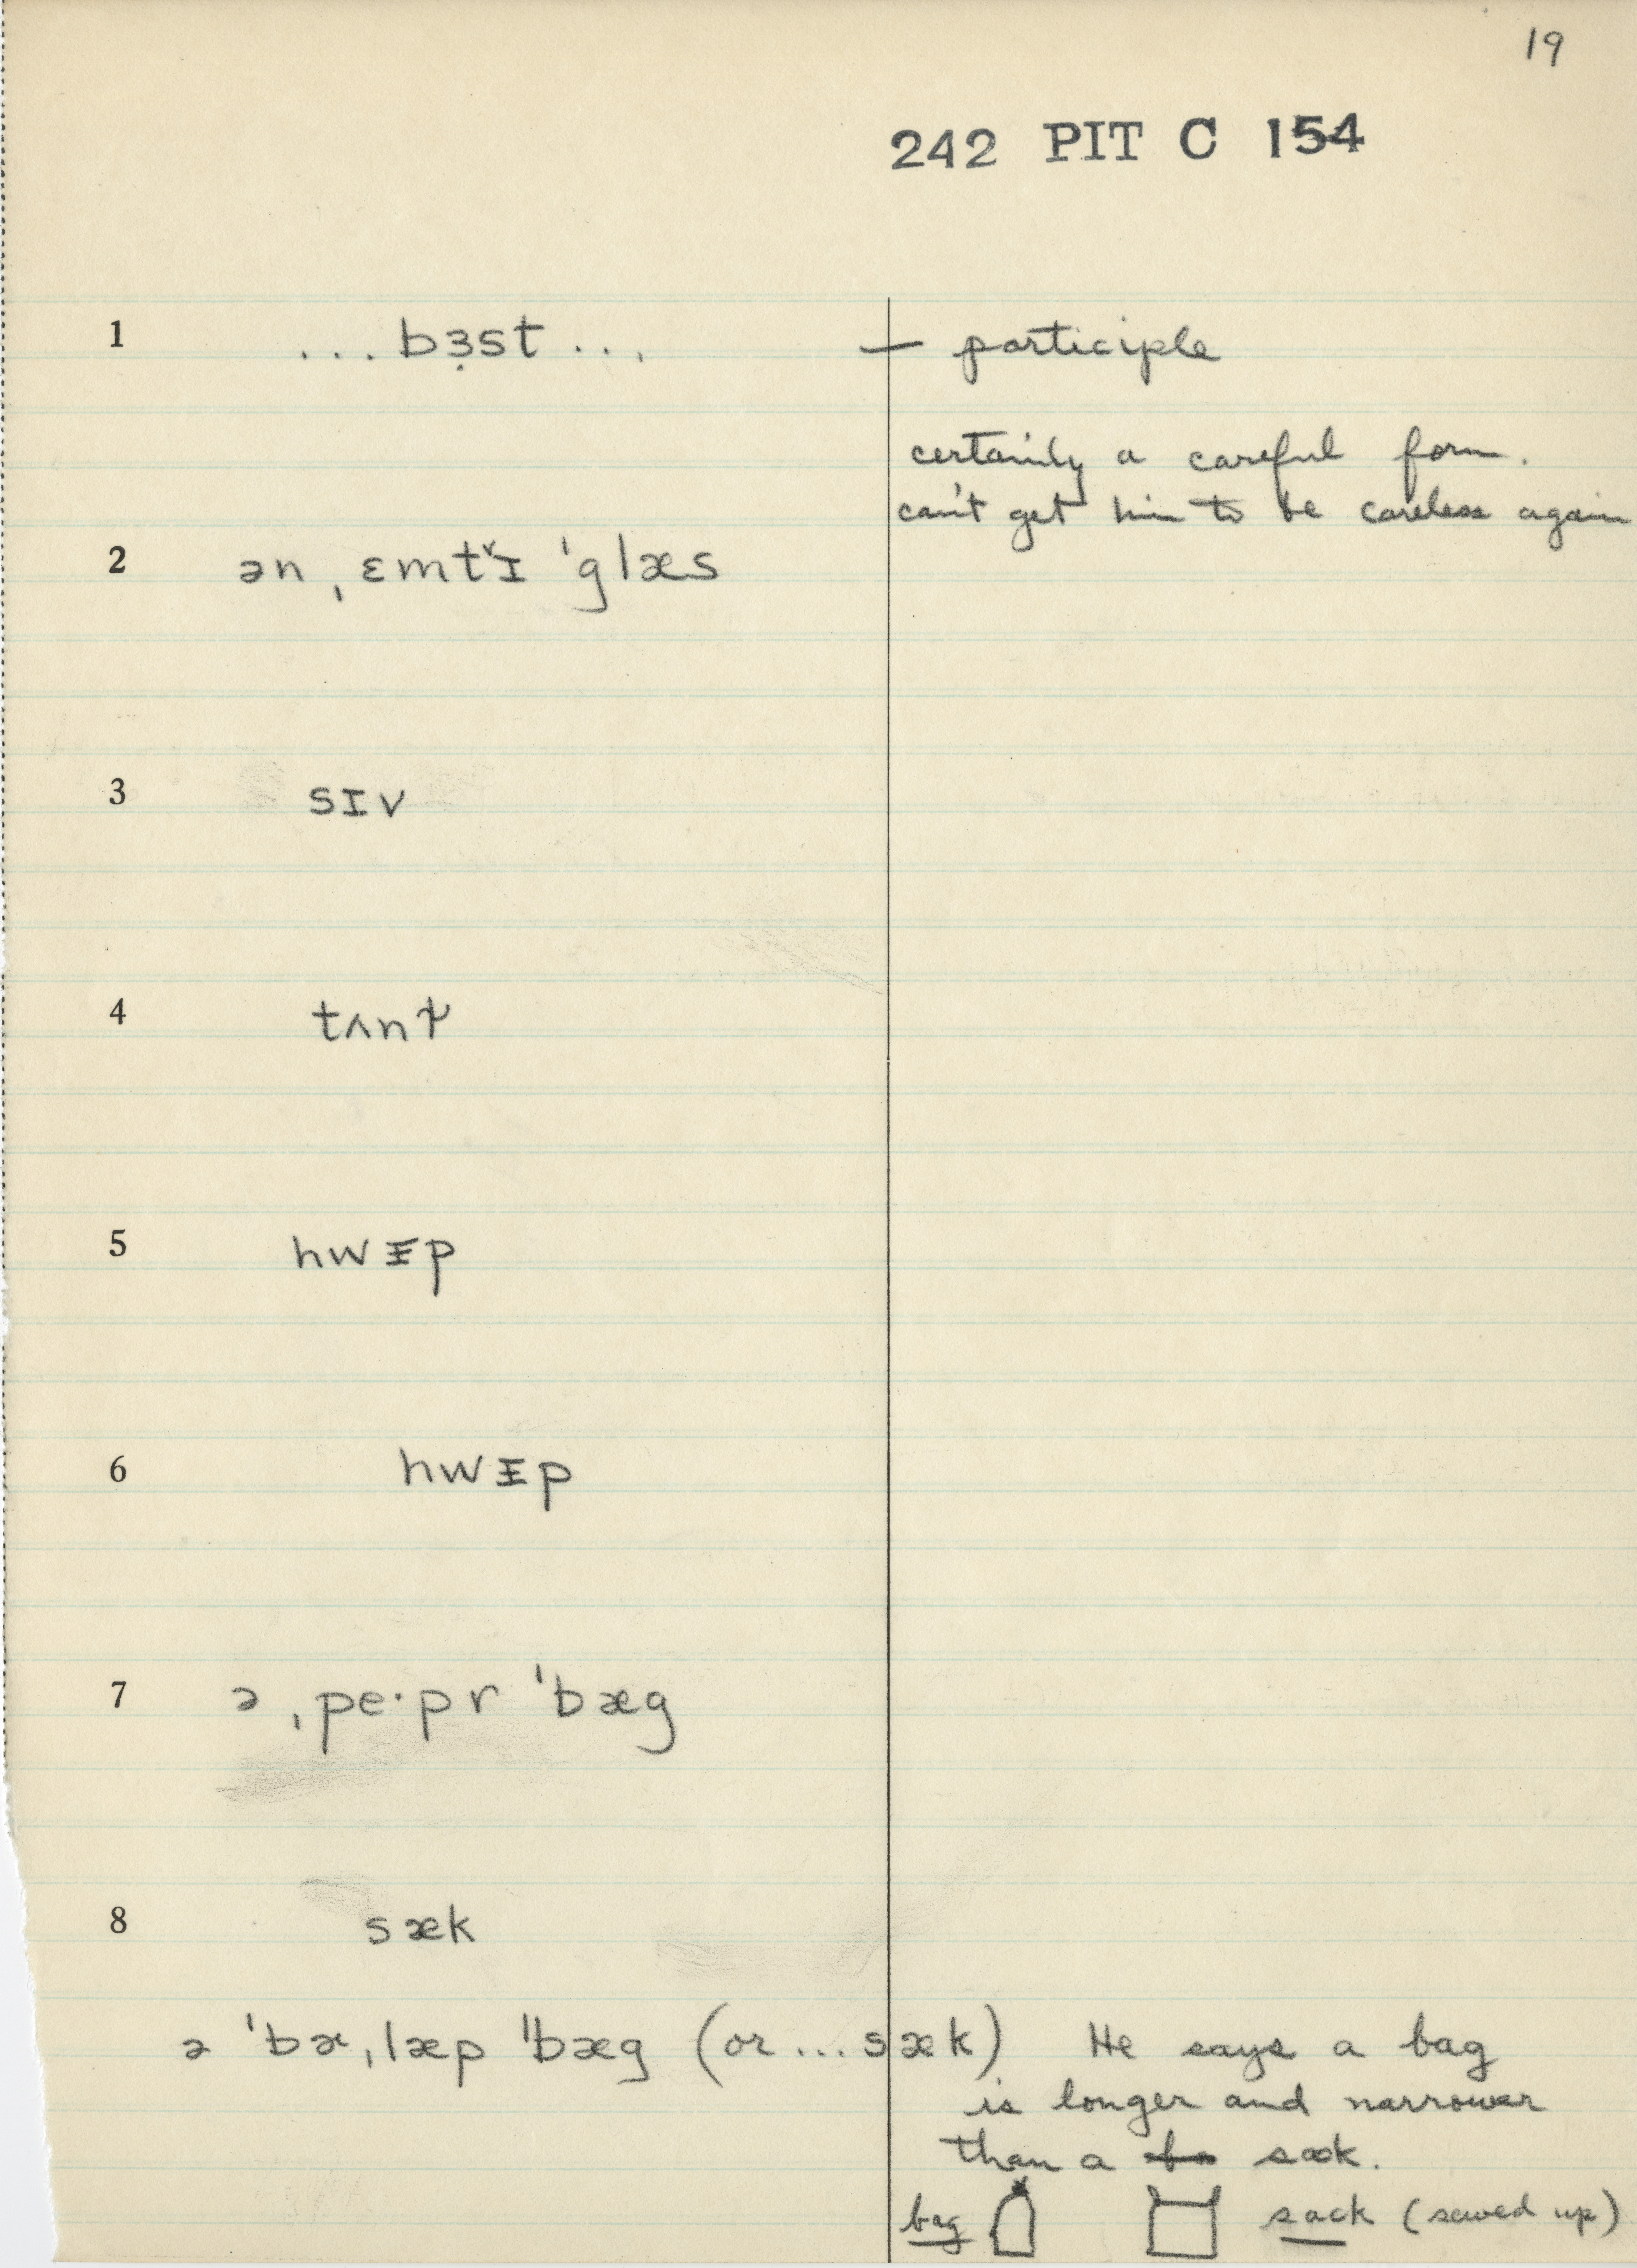 19
242 PIT C 154
1 ... bɜ̣st ... — participle
certainly a careful form.
can't get him to be careless again
2 ən ˌɛmtˇɪ ˈglæs
3 sɪv
4 tʌnɫ
5 hwᵻp
6 hwᵻp
7 ə ˌpe·pr ˈbæg
8 sæk
ə ˈbɚˌlæp ˈˈbæg (or ... sæk) He says a bag
is longer and narrower
than a sack.
bag sack (sewed up)